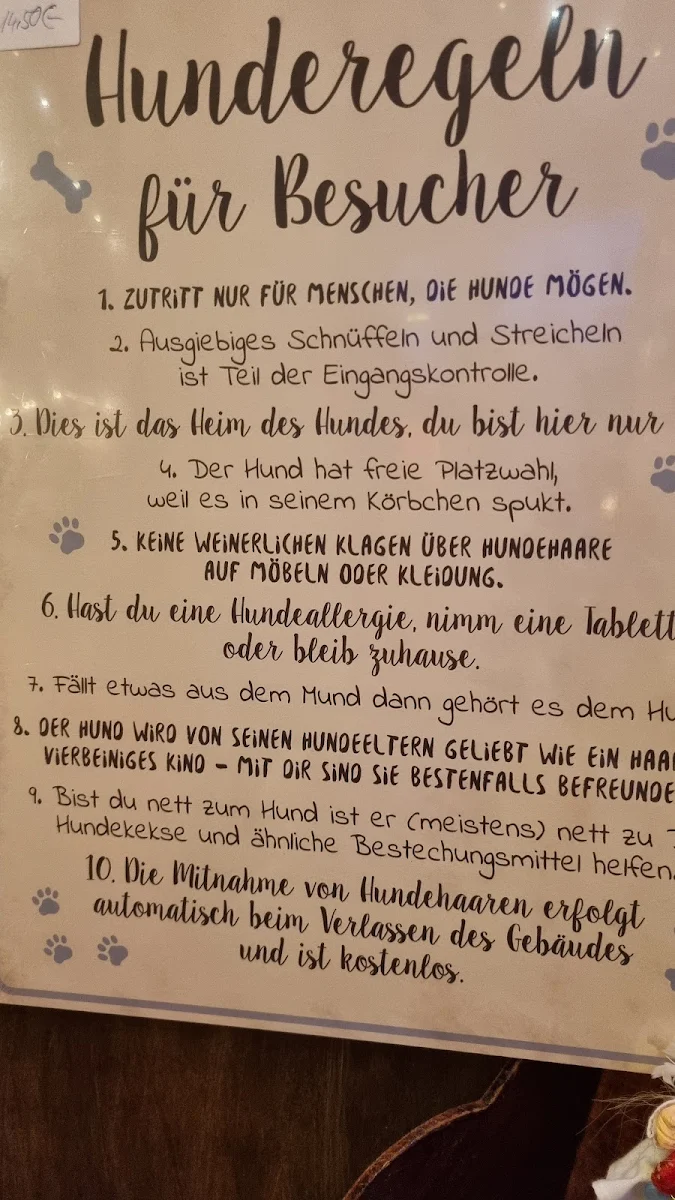 14,50€
Hunderegeln
für Besucher
1. ZUTRITT NUR FÜR MENSCHEN, DIE HUNDE MÖGEN.
2. Ausgiebiges Schnüffeln und Streicheln
ist Teil der Eingangskontrolle.
3. Dies ist das Heim des Hundes, du bist hier nur
4. Der Hund hat freie Platzwahl,
weil es in seinem Körbchen spukt.
5. KEINE WEINERLICHEN KLAGEN ÜBER HUNDEHAARE
AUF MÖBELN ODER KLEIDUNG.
6. Hast du eine Hundeallergie, nimm eine Tablett
oder bleib zuhause.
7. Fällt etwas aus dem Mund dann gehört es dem Hu
8. DER HUND WIRD VON SEINEN HUNDEELTERN GELIEBT WIE EIN HAA
VIERBEINIGES KIND – MIT DIR SIND SIE BESTENFALLS BEFREUNDE
9. Bist du nett zum Hund ist er (meistens) nett zu
Hundekekse und ähnliche Bestechungsmittel helfen.
10. Die Mitnahme von Hundehaaren erfolgt
automatisch beim Verlassen des Gebäudes
und ist kostenlos.